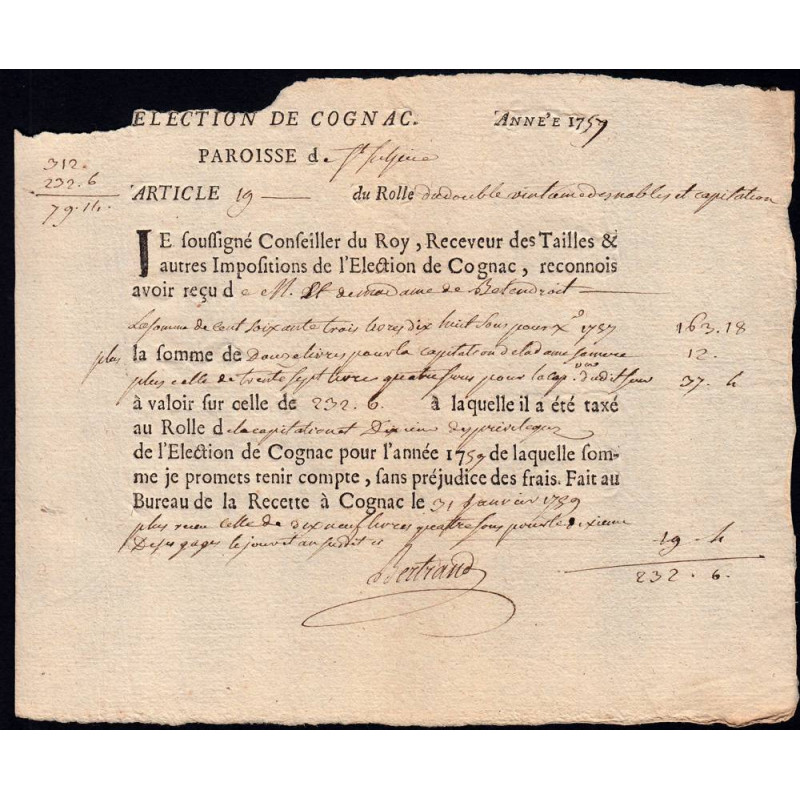 ELECTION DE COGNAC. ANNÉE 1757
PAROISSE de St Sulpice
312.
232.6
79.14
ARTICLE 19 du Rolle du double vintieme des nobles et capitation
JE soussigné Conseiller du Roy, Receveur des Tailles &
autres Impositions de l'Election de Cognac, reconnois
avoir reçu de M. et de madame de
La somme de cent soixante trois livres dix huit sous pour X.e 1757 163.18
plus la somme de Douze livres pour la capitation de la dame sa mere 12.
plus celle de trente sept livres quatre sous pour la cap.on dudit sieur 37.4
à valoir sur celle de 232.6 à laquelle il a été taxé
au Rolle de la capitation et Dixieme des privilegiez
de l'Election de Cognac pour l'année 1757 de laquelle som-
me je promets tenir compte, sans préjudice des frais. Fait au
Bureau de la Recette à Cognac le 31 Janvier 1759
plus receu celle de dix neuf livres quattre sous pour le dixieme
De ses gages le jour et an susdit 19.4
Bertrand 232.6.